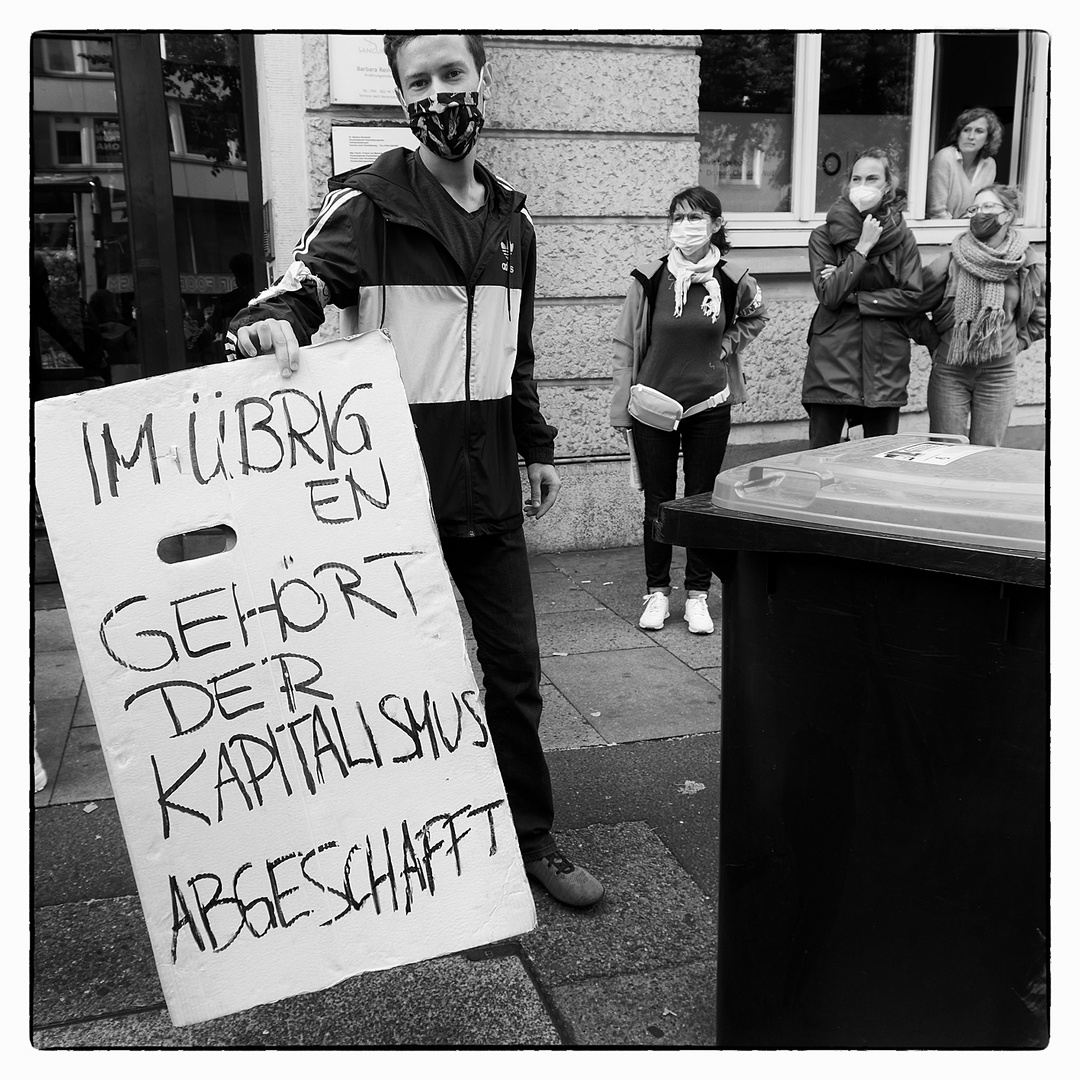 IM ÜBRIG
EN
GEHÖRT
DER
KAPITALISMUS
ABGESCHAFFT